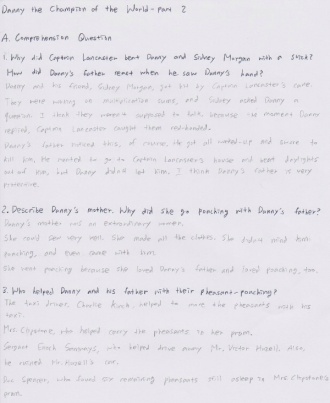 Danny the Champion of the World - part 2
A. Comprehension Question
1. Why did Captain Lancaster beat Danny and Sidney Morgan with a stick?
How did Danny's father react when he saw Danny's hand?
Danny and his friend, Sidney Morgan, got hit by Captain Lancaster's cane.
They were writing up multiplication tables, and Sidney asked Danny a
question. I think they weren't supposed to talk, because the moment Danny
replied, Captain Lancaster caught them red-handed.
Danny's father noticed this, of course. He got all and swore to
kill him. He wanted to go to Captain Lancaster's house and beat daylights
out of him, but Danny didn't let him. I think Danny's father is very
protective.
2. Describe Danny's mother. Why did she go poaching with Danny's father?
Danny's mother was an extraordinary woman.
She could sew very well. She made all the clothes. She didn't mind him
poaching, and even came with him.
She went poaching because she loved Danny's father and loved poaching, too.
3. Who helped Danny and his father with their pheasant-poaching?
The taxi driver, Charlie Kinch, helped to move the pheasants with his
taxi.
Mrs. Clipstone, who helped carry the pheasants in her pram.
Sergeant Enoch Samways, who helped drive away Mr. Victor Hazell. Also,
he Mr. Hazell's car.
Doc Spencer, who found six remaining pheasants still asleep in Mrs. Clipstone's
pram.